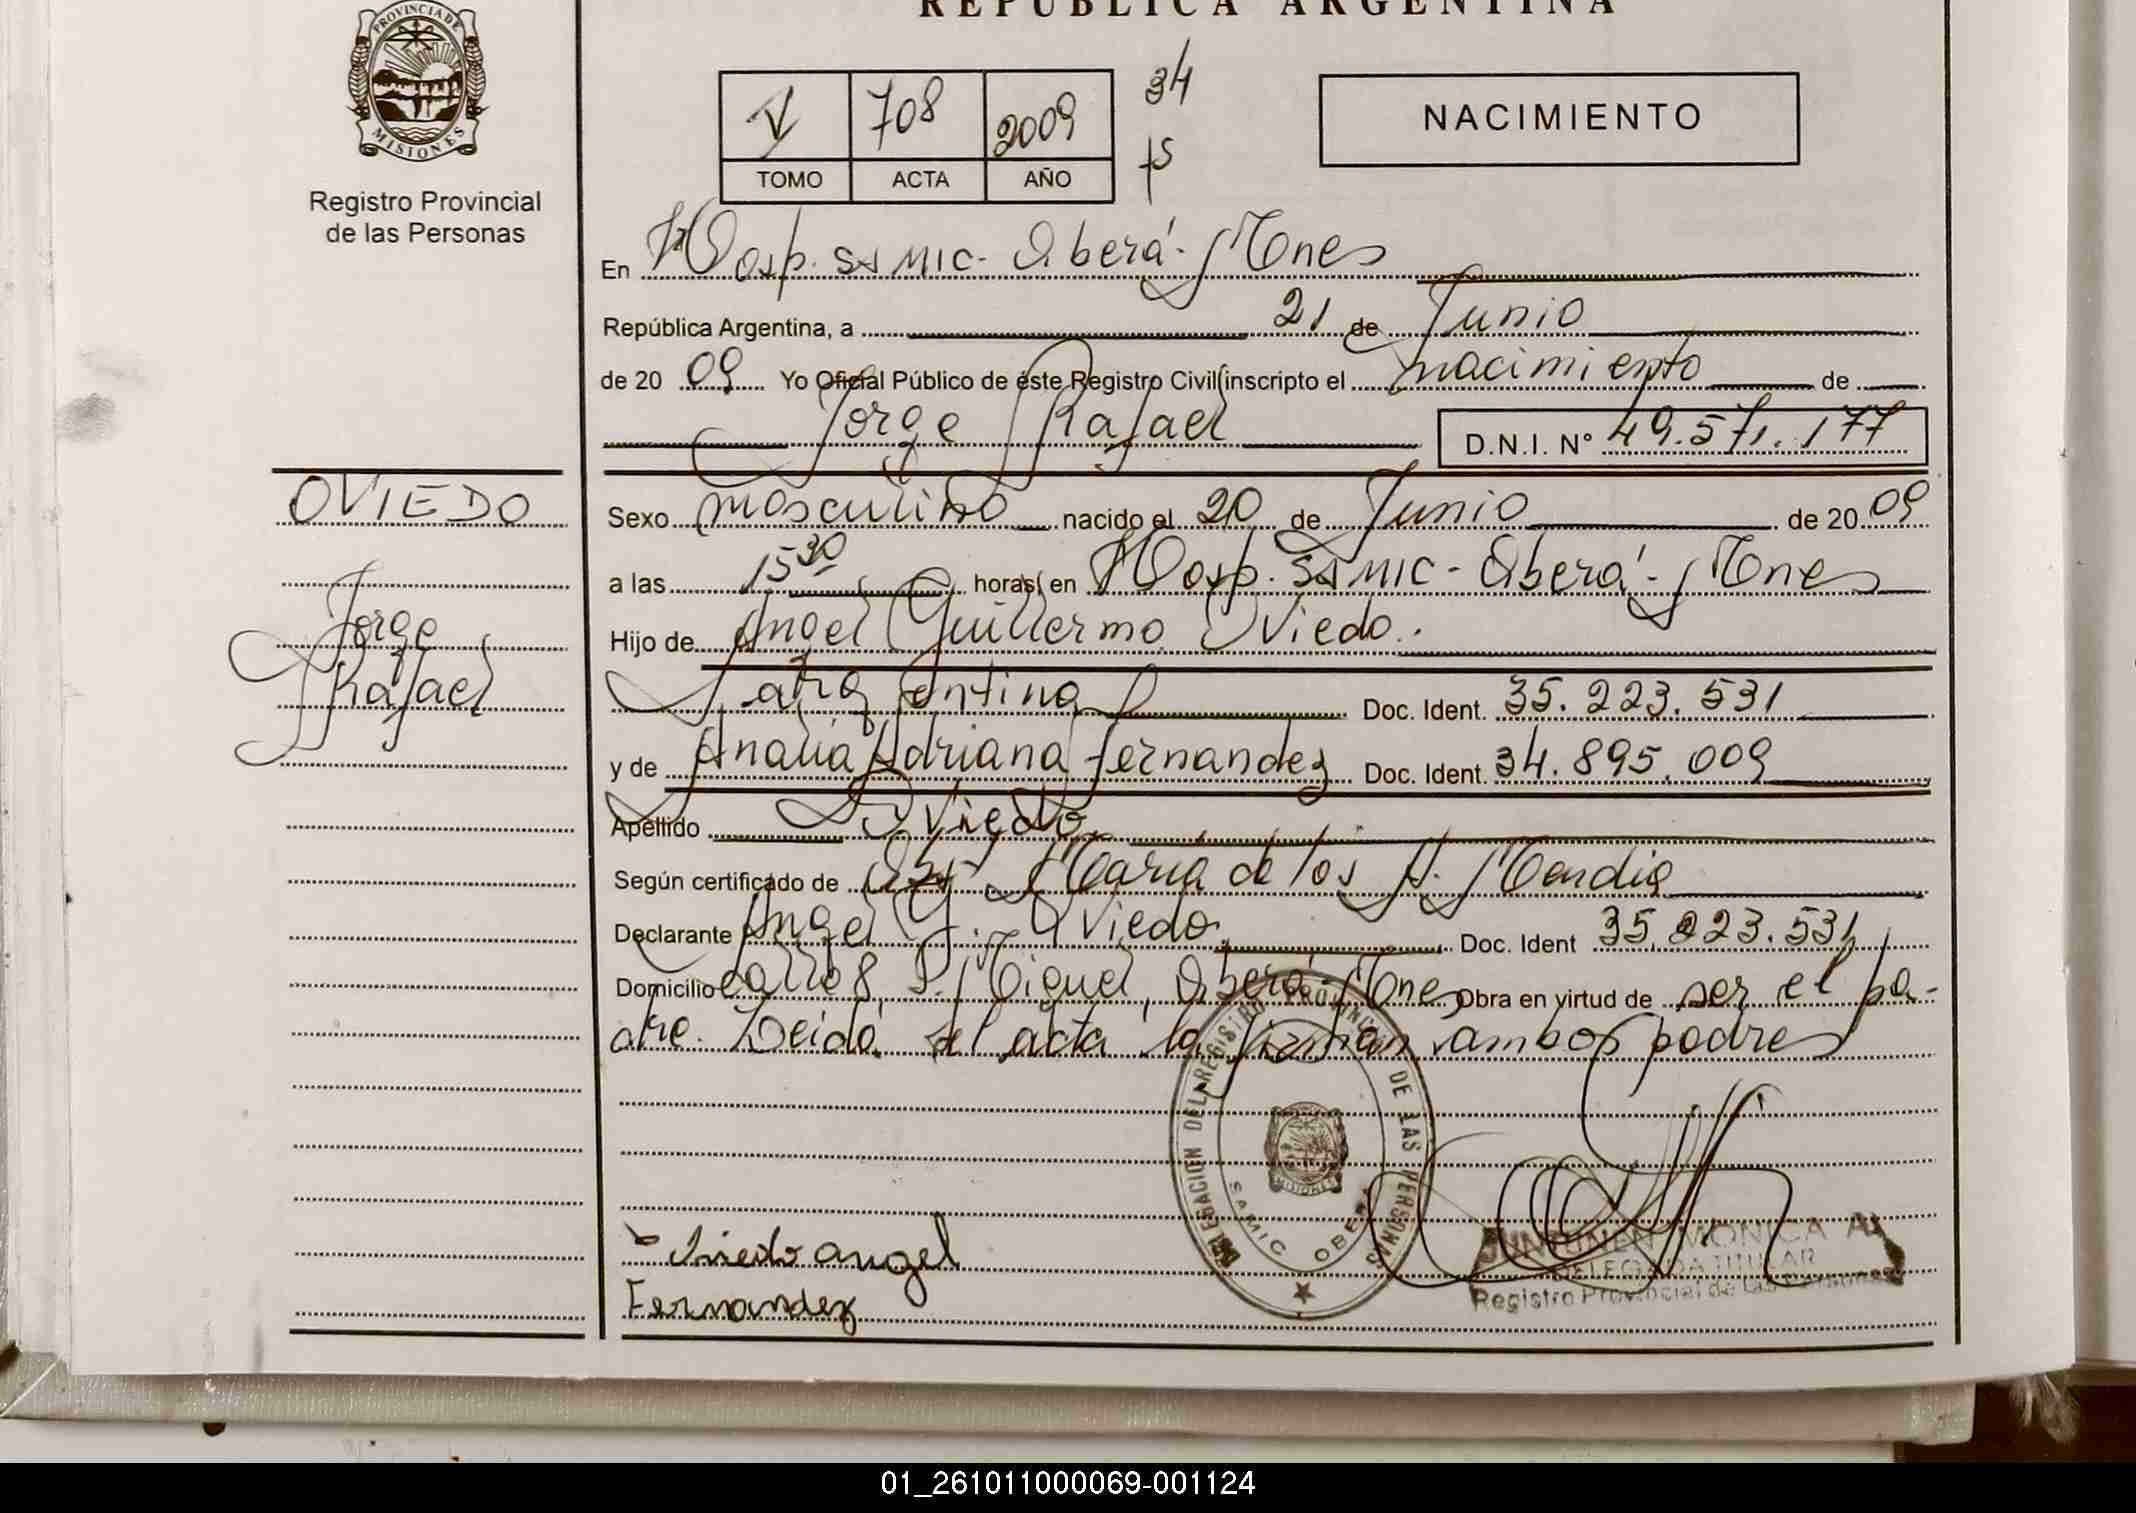 REPÚBLICA ARGENTINA
PROVINCIA DE
MISIONES
Registro Provincial
de las Personas
V 708 2009
TOMO ACTA AÑO
34
f5
NACIMIENTO
En Hosp. SAMIC- Oberá- Mnes
República Argentina, a 21 de Junio
de 20 09 Yo Oficial Público de éste Registro Civil inscripto el nacimiento de
Jorge Rafael D.N.I. N° 49.571.177
OVIEDO
Jorge
Rafael
Sexo masculino nacido el 20 de Junio de 20 09
a las 15 30 horas en Hosp. SAMIC- Oberá- Mnes
Hijo de Angel Guillermo Oviedo.
argentina Doc. Ident. 35.223.531
y de Analia Adriana Fernandez Doc. Ident. 34.895.009
Apellido Oviedo
Según certificado de María de los A. Mendia
Declarante Angel G. Oviedo Doc. Ident 35.223.531
Domicilio calle 8, S. Miguel, Oberá- Mnes Obra en virtud de ser el pa-
dre. Leida el acta la firman ambos padres
DELEGACION DEL REGISTRO PROVINCIAL DE LAS PERSONAS
MISIONES
SAMIC OBERA
Oviedo angel
Fernandez
MONICA A.
DELEGADA TITULAR
Registro Provincial de las Personas
01_261011000069-001124